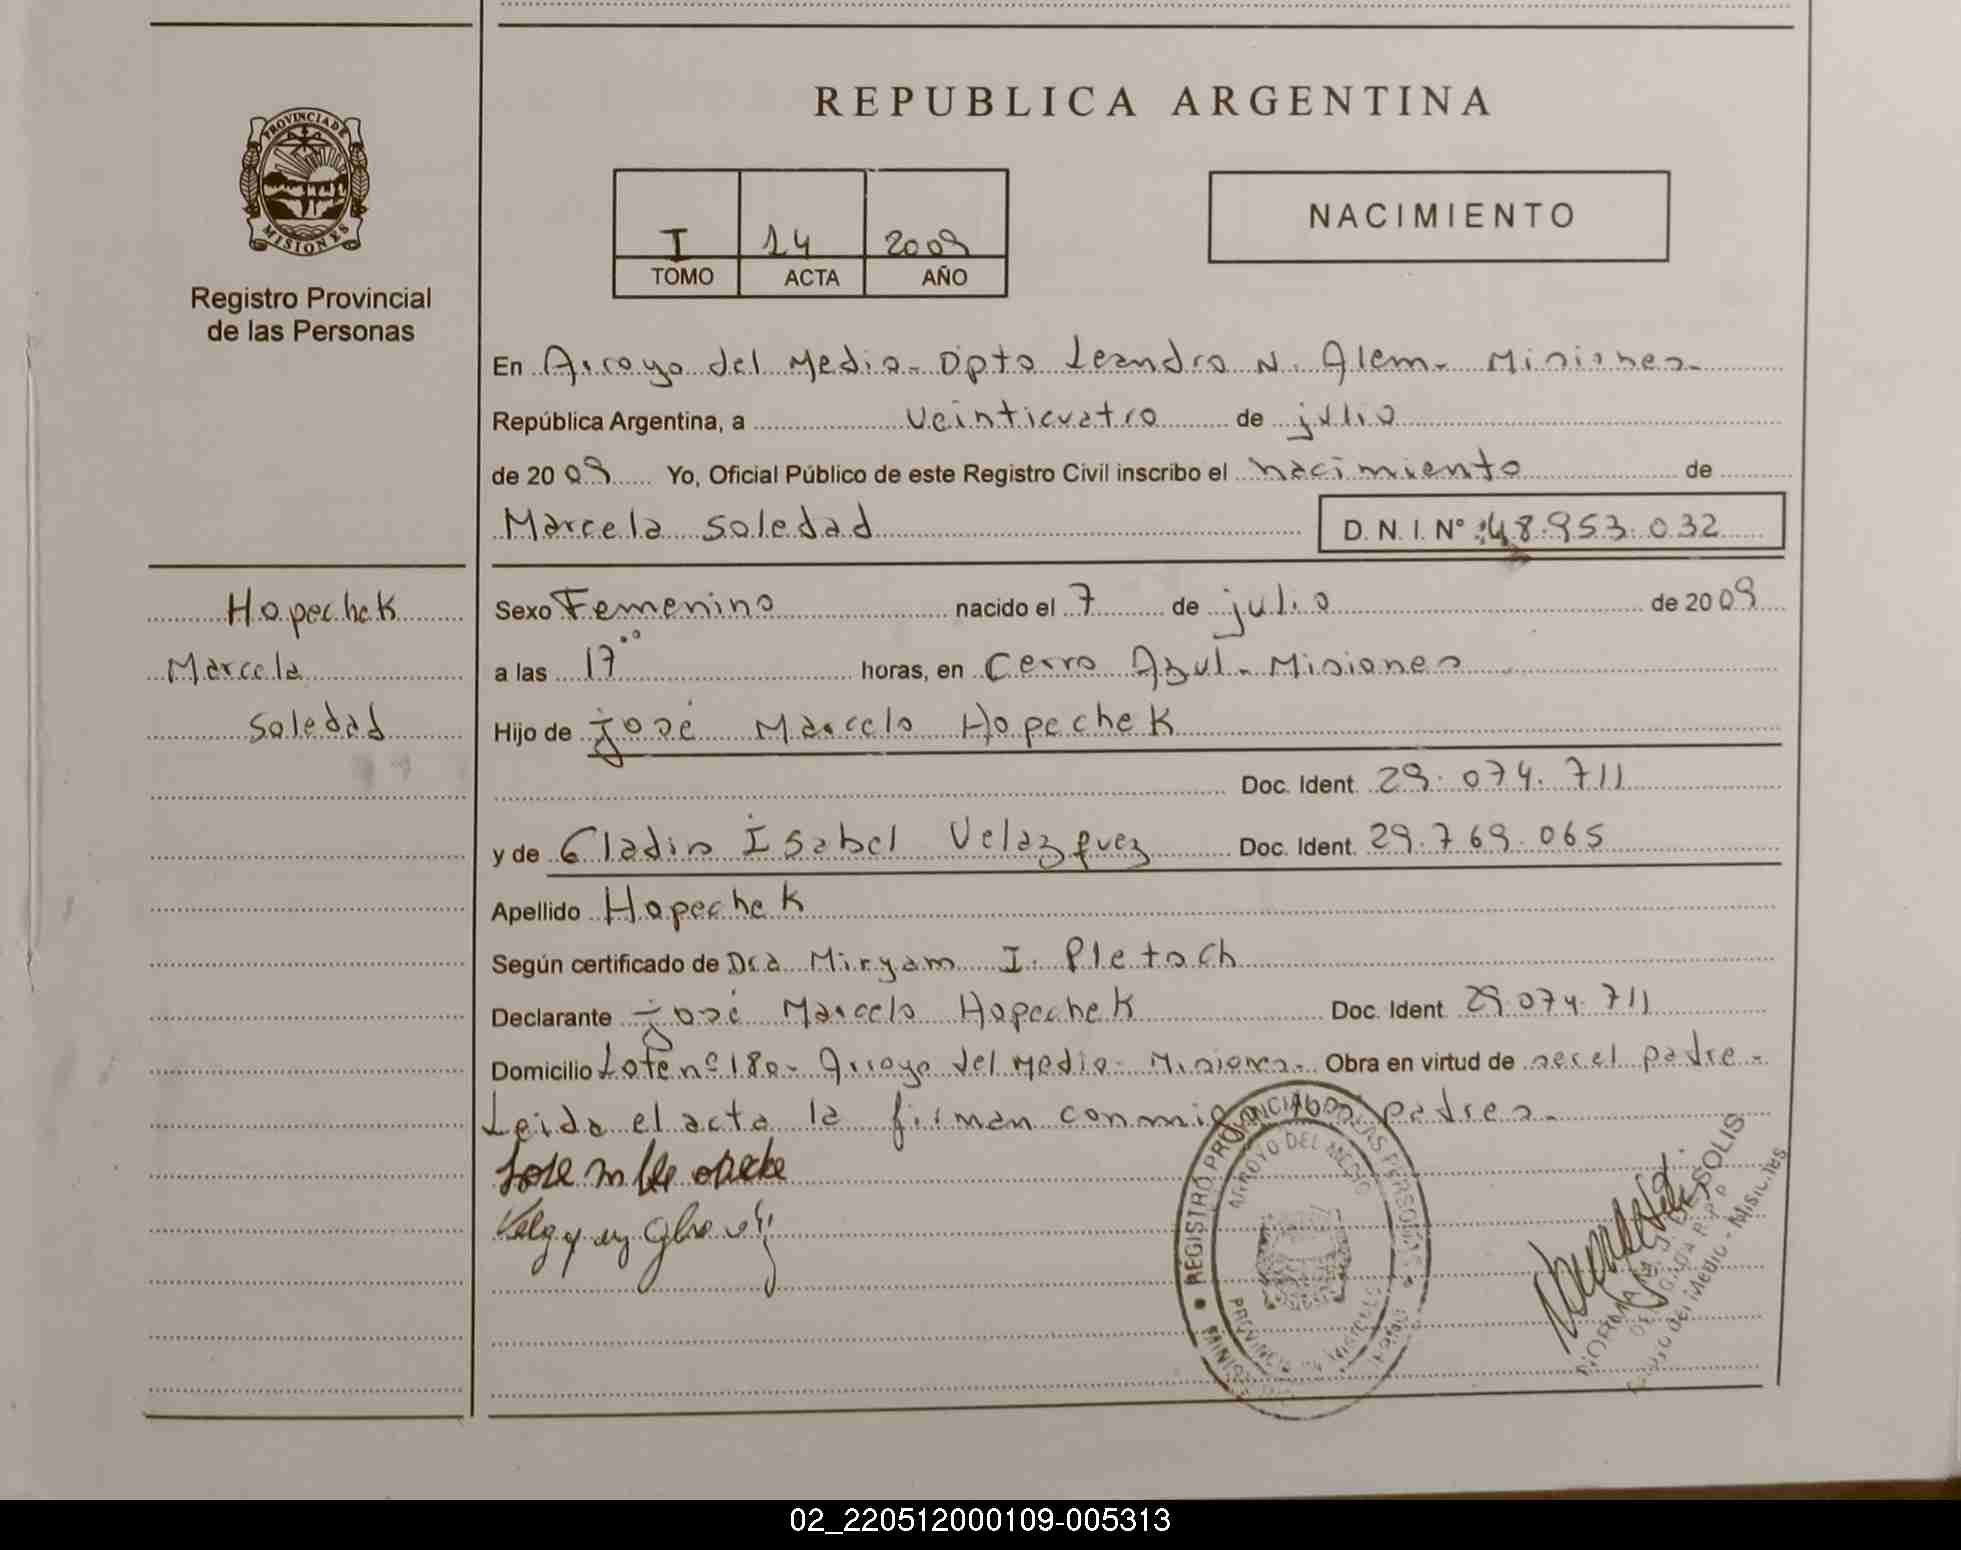 REPUBLICA ARGENTINA
PROVINCIA DE
MISIONES
Registro Provincial
de las Personas
I 14 2009
TOMO ACTA AÑO
NACIMIENTO
En Arroyo del Medio - Dpto Leandro N. Alem - Misiones -
República Argentina, a veinticuatro de julio
de 2009 Yo, Oficial Público de este Registro Civil inscribo el nacimiento de
Marcela Soledad D. N. I. N° 48.953.032
Hopechek
Marcela
Soledad
Sexo Femenino nacido el 7 de julio de 2009
a las 17°° horas, en Cerro Azul - Misiones
Hijo de José Marcelo Hopechek
Doc. Ident. 29.074.711
y de Gladis Isabel Velazquez Doc. Ident. 29.769.065
Apellido Hopechek
Según certificado de Dra Miryam I. Pletsch
Declarante José Marcelo Hopechek Doc. Ident. 29.074.711
Domicilio Lote nº 180 - Arroyo del Medio - Misiones - Obra en virtud de ser el padre -
Leida el acta la firman conmigo padres -
REGISTRO PROVINCIAL DE LAS PERSONAS
ARROYO DEL MEDIO
PROVINCIA DE MISIONES
NORMA DE SOLIS
DELEGADA R.P.P.
del Medio - Misiones
02_220512000109-005313